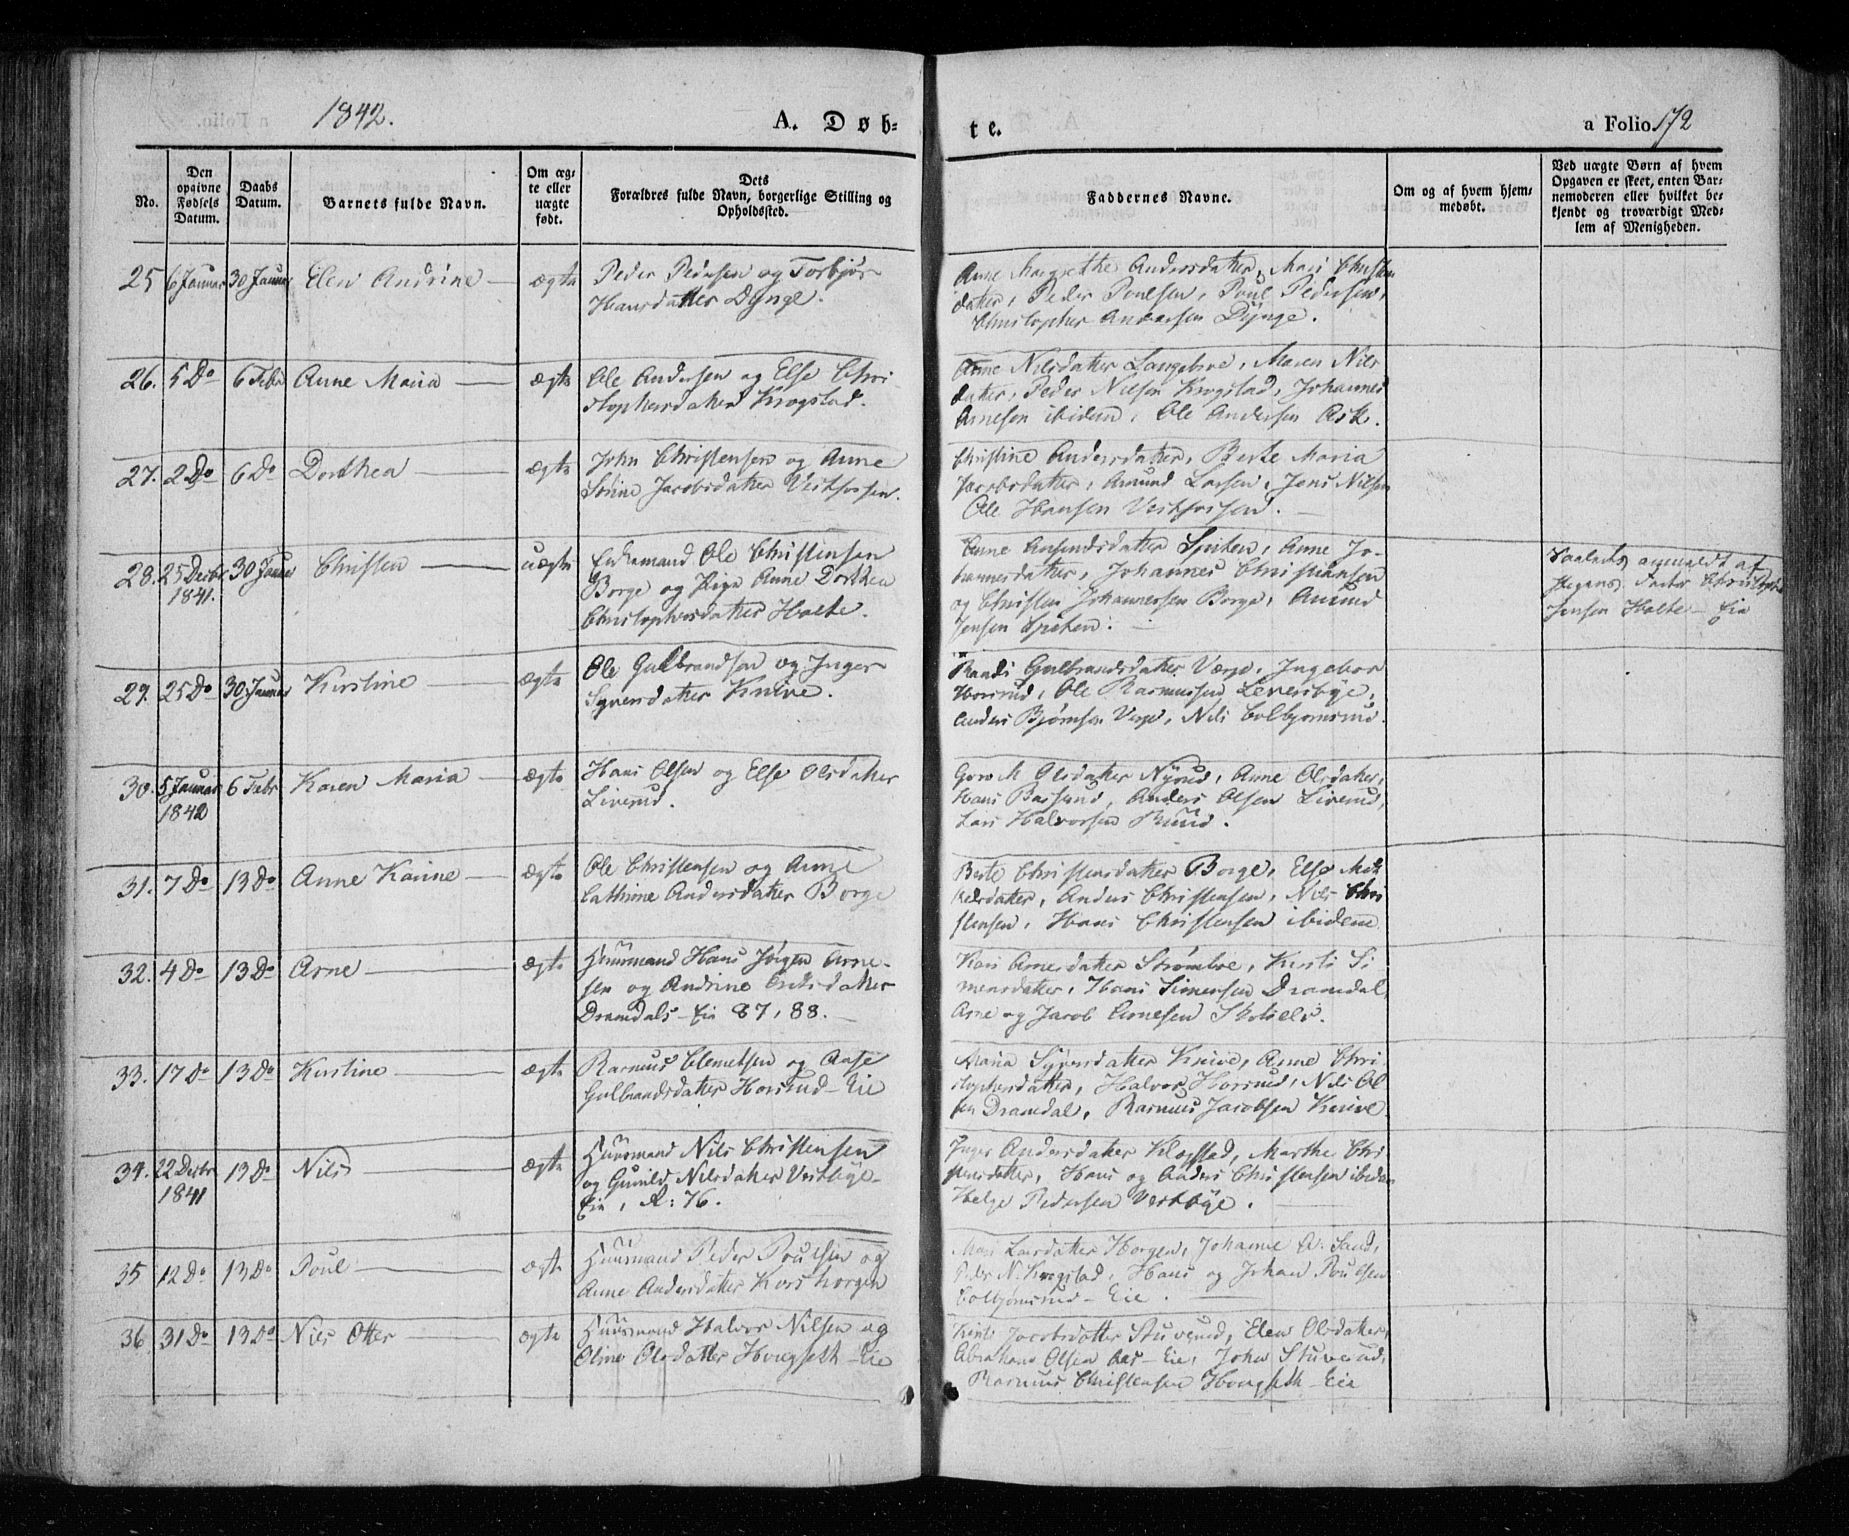 1842.
A. Døb-
te.
a Folio 172
No.
Den opgivne Fødsels Datum.
Daabs Datum.
Barnets fulde Navn.
Om ægte eller uægte født.
Dets Forældres fulde Navn, borgerlige Stilling og Opholdssted.
Faddernes Navne.
Om og af hvem hjemmedøbt.
Ved uægte Børn af hvem Opgaven er skeet, enten Barnemoderen eller hvilket bekjendt og troværdigt Medlem af Menigheden.
25 6 Januar 30 Januar Elen Andrine ægte
Peder Pedersen og Torbjør
Hansdatter Dynge.
Anne Margrethe Andersdatter, Mari Christens
datter, Peder Poulsen, Poul Pedersen,
Christopher Andersen Dynge.
26. 5 Do 6 Febr Anne Maria ægte
Ole Andersen og Else Chri
stophersdatter Krogstad.
Anne Nilsdatter Langebroe, Maren Nils
datter, Peder Nilsen Krogstad, Johannes
Arnesen ibidem, Ole Andersen Ask.
27. 2 Do 6 Do Dorthea ægte
John Christensen og Anne
Sörine Jacobsdatter Vestfossen.
Christine Andersdatter, Berte Maria
Jacobsdatter, Amund Larsen, Jens Nilsen
Ole Hansen Vestfossen.
28. 25 Decbr 1841. 30 Januar Christen uægte
Enkemand Ole Christensen
Borge og Pige Anne Dorthea
Christophersdatter Holte.
Anne Amundsdatter Spiten, Anne Jo-
hannesdatter, Johannes Christiansen
og Christen Johannersen Borge, Amund
Jensen Spiten.
anmeldt af
Pigens Fader Christopher
Jensen Holte-Eie
29. 25 Do 30 Januar Kirstine ægte
Ole Gulbrandsen og Inger
Syversdatter Knive.
Randi Gulbrandsdatter Verge, Ingebor
Horsrud, Ole Rasmussen Leversbye,
Anders Bjørnsen Verge, Nils Colbjørnsrud.
30. 5 Januar 1842 6 Febr Karen Maria ægte
Hans Olsen og Else Olsdatter
Liverud.
Goro M Olsdatter Nyrud, Anne Olsdatter,
Hans Basserud, Anders Olsen Liverud,
Lars Halvorsen Ruud.
31. 7 Do 13 Do Anne Karine ægte
Ole Christensen og Anne
Cathrine Andersdatter Borge
Berte Christensdatter Borge, Else Mik
kelsdatter, Anders Christensen, Nils Chri
stensen, Hans Christensen ibidem
32. 4 Do 13 Do Arne ægte
Huusmand Hans Jörgen Arne-
sen og Andrine Eriksdatter
Dramdals-Eie 87, 88.
Kari Arnesdatter Strømboe, Kirsti Si
mensdatter, Hans Simensen Dramdal,
Arne og Jacob Arnesen Skotselv.
33. 17 Do 13 Do Kirstine ægte
Rasmus Clemetsen og Aase
Gulbrandsdatter Horsrud-Eie
Maria Syversdatter Knive, Anne Chri
stophersdatter, Halvor Horsrud, Nils Ol
sen Dramdal, Rasmus Jacobsen Knive
34. 22 Decbr 1841 13 Do Nils ægte
Huusmand Nils Christensen
og Gunild Nilsdatter Vestbye-
Eie, A: 76.
Inger Andersdatter Klogstad, Marthe Chri
stensdatter, Hans og Anders Christensen ibidem
Helge Pedersen Vestbye.
35 12 Do 13 Do Poul ægte
Huusmand Peder Poulsen og
Anne Andersdatter Korshorgen
Mari Larsdatter Horgen, Johanne A. Sand,
Peder N. Krogstad, Hans og Johan Poulsen
Colbjørnsrud-Eie.
36 31 Do 13 Do Nils Otter ægte
Huusmand Halvor Nilsen og
Oline Olsdatter Hougseth-Eie
Kirsti Jacobsdatter Stuverud, Elen Olsdatter,
Abraham Olsen Aas-Eie, John Stuverud,
Rasmus Christensen Hougseth-Eie